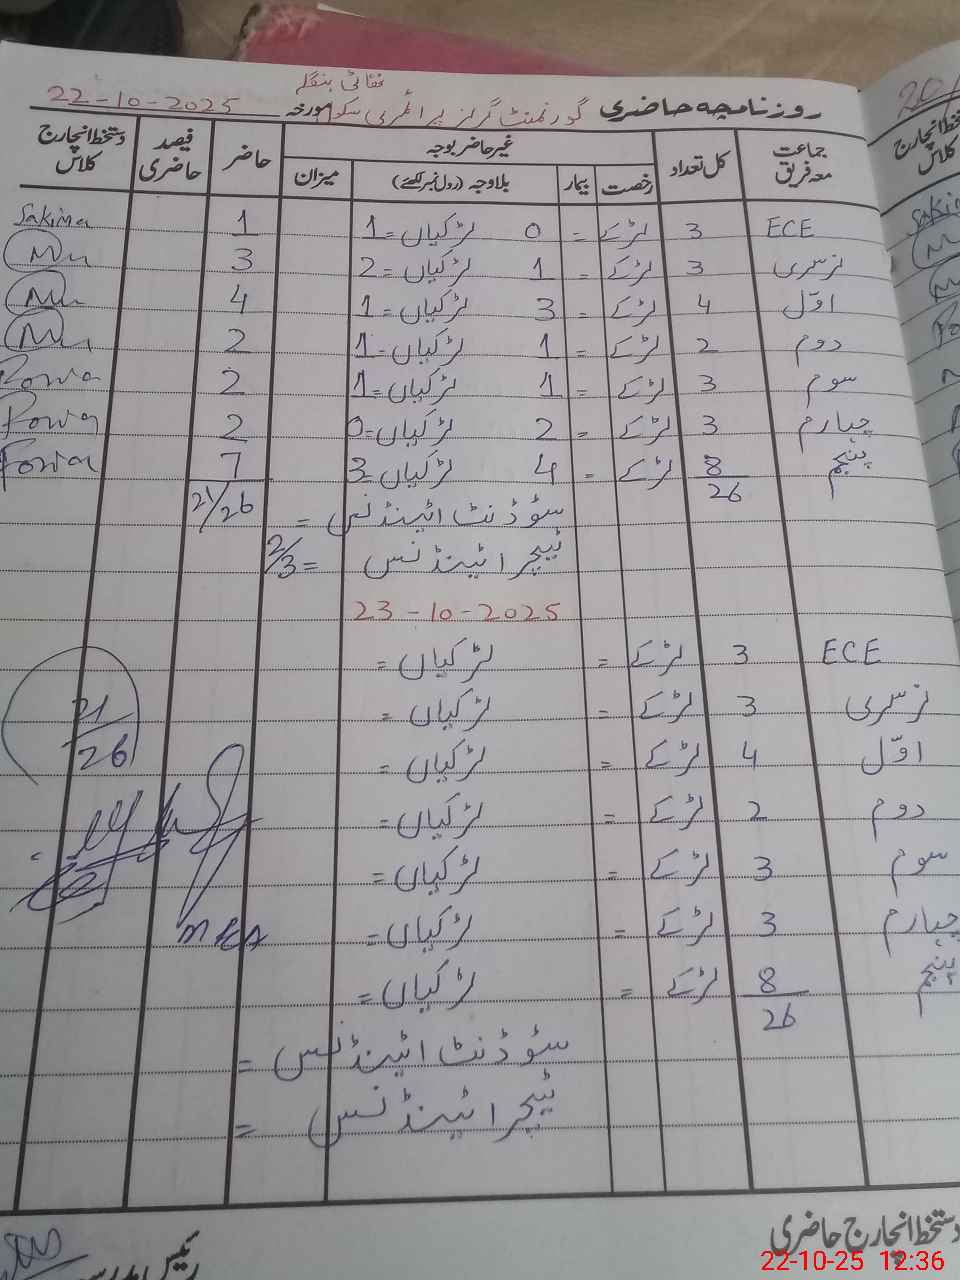 نقائی بنگلے
روزنامچہ حاضری گورنمنٹ گرلز پرائمری سکول مورخہ 22-10-2025
جماعت معہ فریق کل تعداد غیر حاضر بوجہ حاضر فیصد حاضری دستخط انچارج کلاس
رخصت بیمار بلاوجہ (رول نمبر لکھئے) میزان
ECE 3 لڑکے = 0 لڑکیاں = 1 1 Sakina
نرسری 3 لڑکے = 1 لڑکیاں = 2 3
اوّل 4 لڑکے = 3 لڑکیاں = 1 4
دوم 2 لڑکے = 1 لڑکیاں = 1 2
سوم 3 لڑکے = 1 لڑکیاں = 1 2
چہارم 3 لڑکے = 2 لڑکیاں = 0 2
پنجم 8 لڑکے = 4 لڑکیاں = 3 7
26 سٹوڈنٹ اٹینڈنس = 21/26
ٹیچر اٹینڈنس = 2/3
23-10-2025
ECE 3 لڑکے = لڑکیاں =
نرسری 3 لڑکے = لڑکیاں = 21
اوّل 4 لڑکے = لڑکیاں = 26
دوم 2 لڑکے = لڑکیاں =
سوم 3 لڑکے = لڑکیاں =
چہارم 3 لڑکے = لڑکیاں = MEA
پنجم 8 لڑکے = لڑکیاں =
26
سٹوڈنٹ اٹینڈنس =
ٹیچر اٹینڈنس =
دستخط انچارج حاضری رئیس مدرسہ
22-10-25 12:36